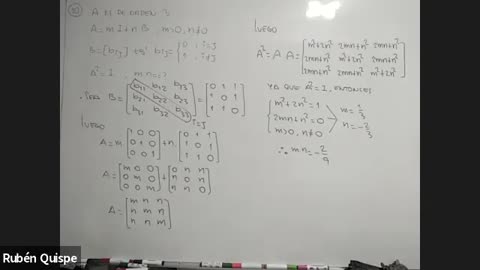 A ES DE ORDEN 3
A = m I + n B , m>0, n≠0
B = [bij] tq' bij = { 0 , i=j
1 , i≠j
A² = I mn=?
IDEA B = [ b11 b12 b13
b21 b22 b23
b31 b32 b33 ] = [ 0 1 1
1 0 1
1 1 0 ]
i=j
LUEGO
A = m [ 1 0 0
0 1 0
0 0 1 ] + n [ 0 1 1
1 0 1
1 1 0 ]
A = [ m 0 0
0 m 0
0 0 m ] + [ 0 n n
n 0 n
n n 0 ]
A = [ m n n
n m n
n n m ]
LUEGO
A² = A A = [ m²+2n² 2mn+n² 2mn+n²
2mn+n² m²+2n² 2mn+n²
2mn+n² 2mn+n² m²+2n² ]
YA QUE A² = I, ENTONCES
{ m²+2n² = 1
2mn+n² = 0
m>0, n≠0
m = 1/3
n = -2/3
∴ mn = -2/9
Rubén Quispe